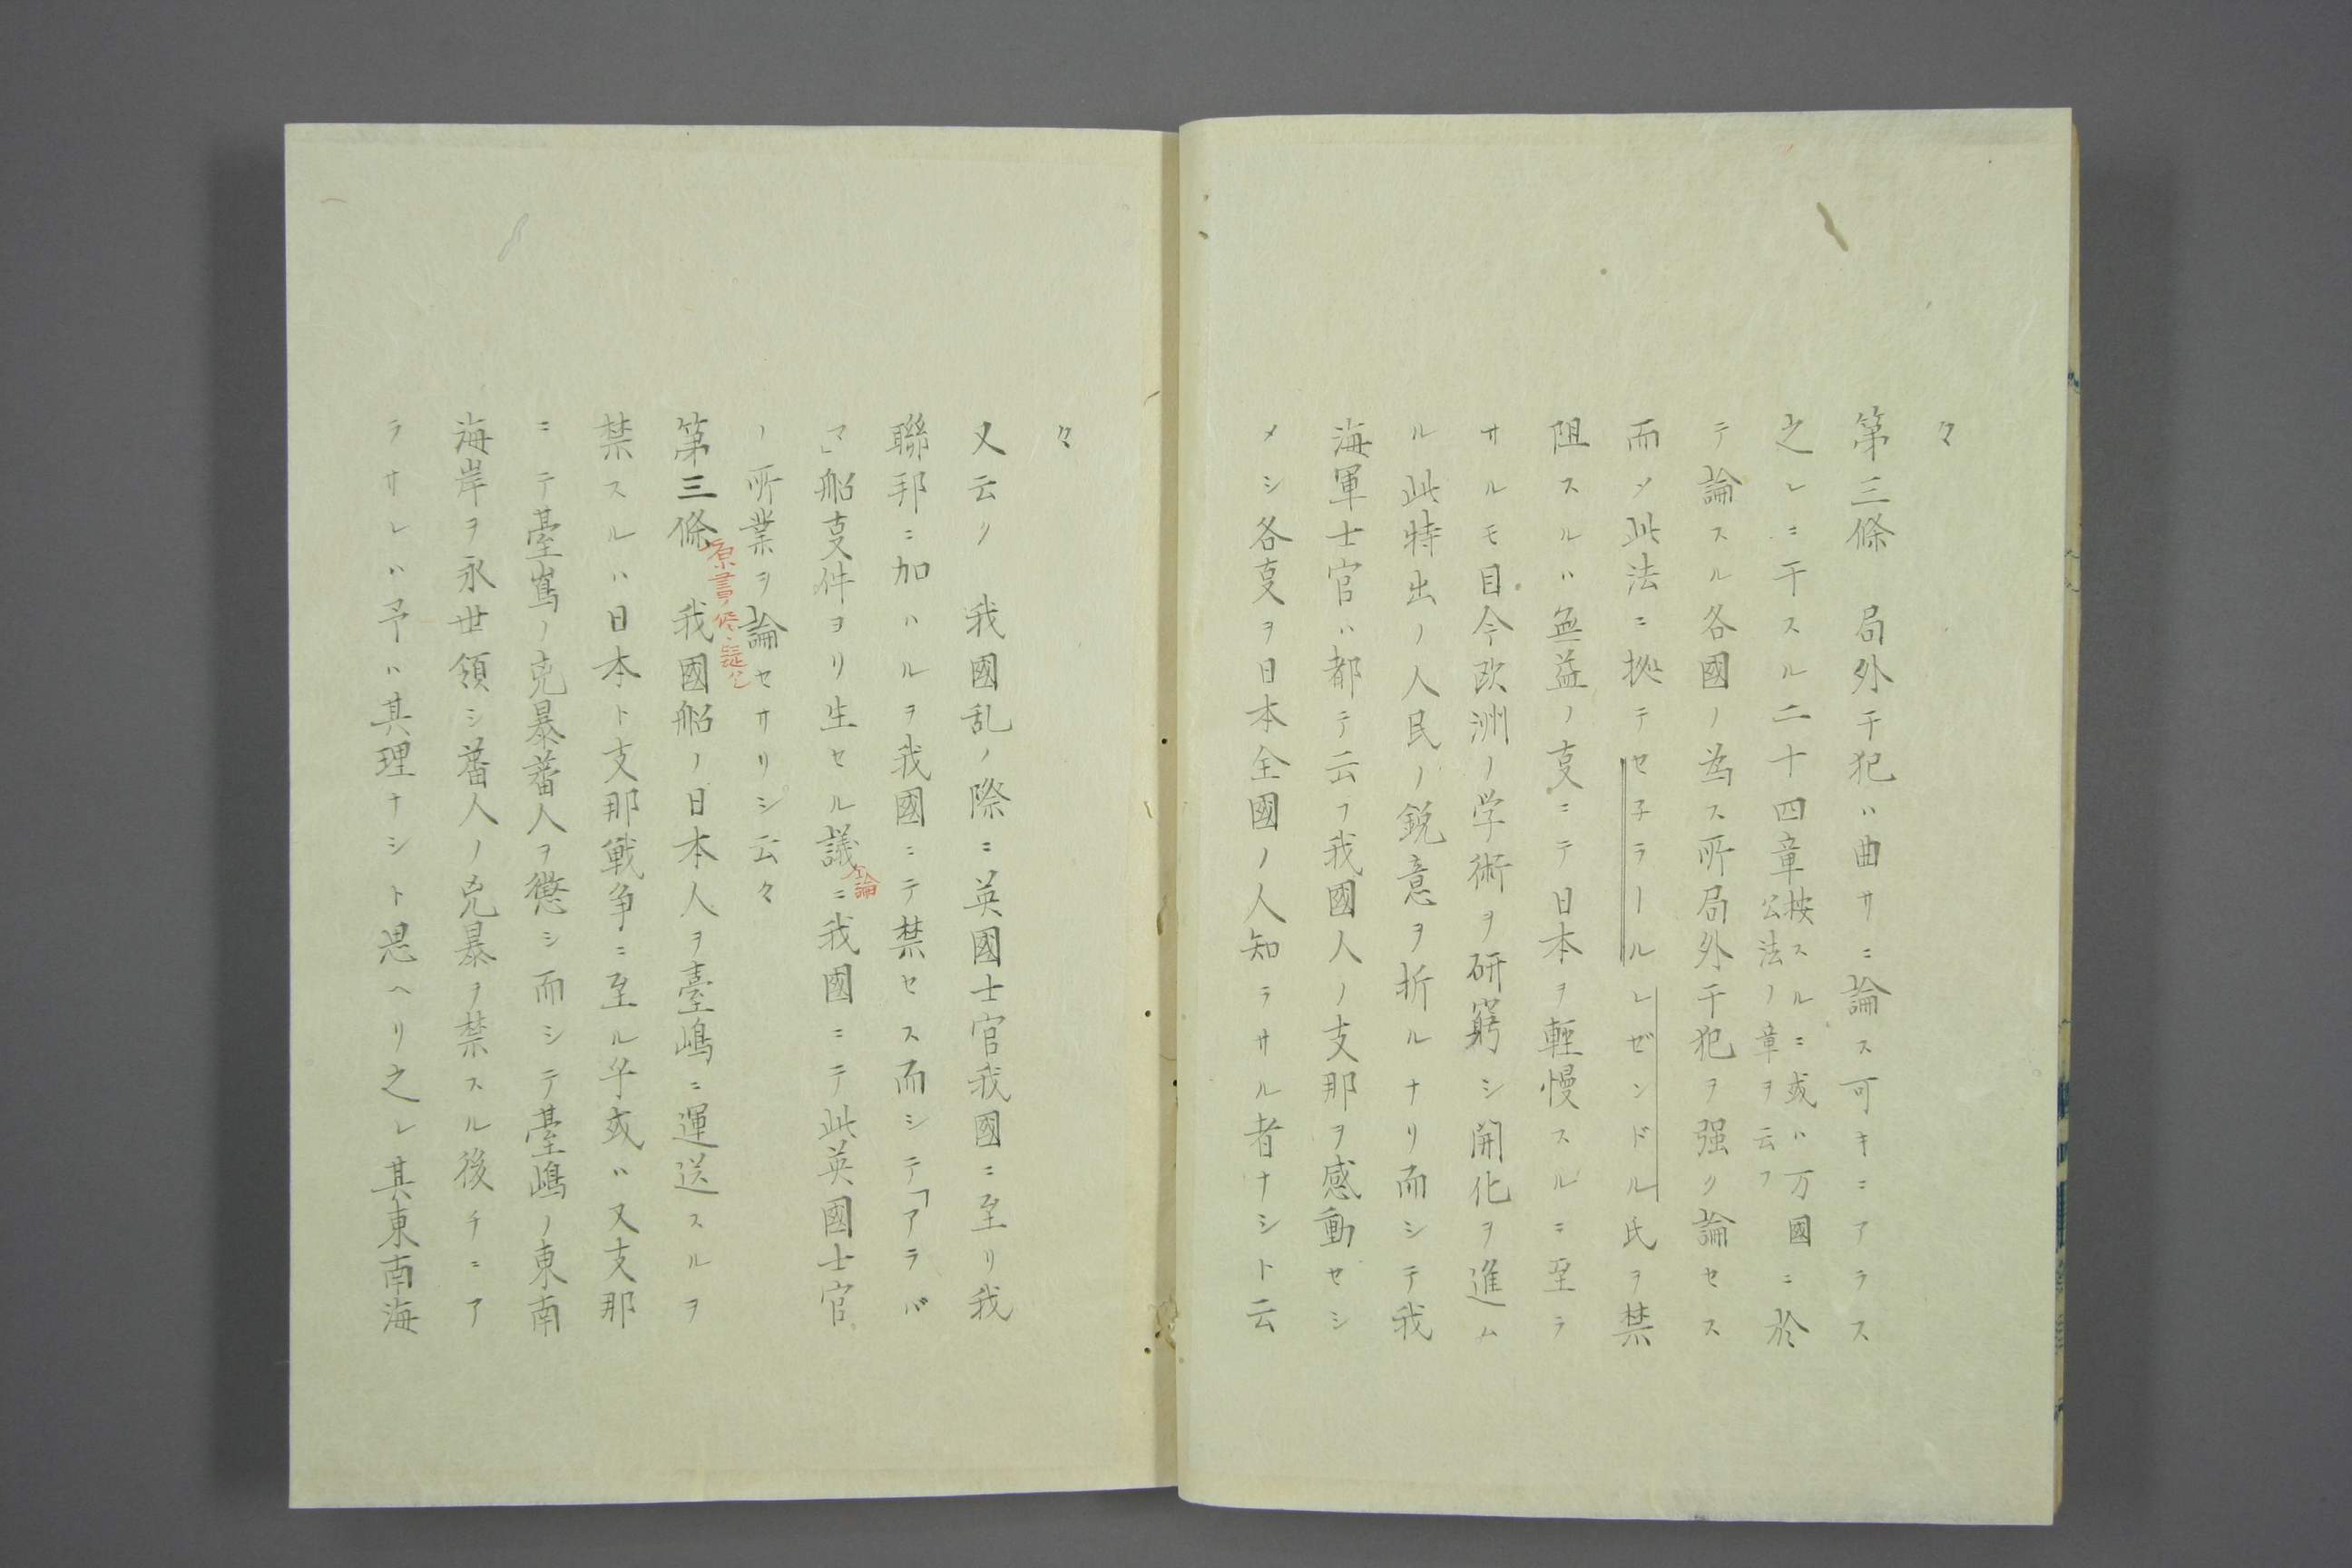 々
第三條　局外干犯ハ曲サニ論ス可キニアラス
之レニ干スル二十四章
按スルニ或ハ万國
公法ノ章ヲ云フ
ニ於
テ論スル各國ノ為ス所局外干犯ヲ强ク論セス
而メ此法ニ拠テセ子ラールレゼンドル氏ヲ禁
阻スルハ無益ノ㕝ニテ日本ヲ輕慢スルニ至ラ
サルモ目今欧洲ノ学術ヲ研窮シ開化ヲ進ム
ル此特出ノ人民ノ鋭意ヲ折ルナリ而シテ我
海軍士官ハ都テ云フ我國人ノ支那ヲ感動セシ
メシ各㕝ヲ日本全國ノ人知ラサル者ナシト云
々
又云ク　我國乱ノ際ニ英國士官我國ニ至リ我
聯邦ニ加ハルヲ我國ニテ禁セス而シテ「アラバ
マ」船㕝件ヨリ生セル議ニ我國ニテ此英國士官
論
ノ所業ヲ論セサリシ云々
第三條　我國船ノ日本人ヲ臺嶋ニ運送スルヲ
原書ノ條
禁スルハ日本ト支那戦争ニ至ル乎或ハ又支那
ニテ臺嶌ノ兇暴蕃人ヲ懲シ而シテ臺嶋ノ東南
海岸ヲ永世領シ蕃人ノ兇暴ヲ禁スル後チニア
ラサレハ予ハ其理ナシト思ヘリ之レ其東南海